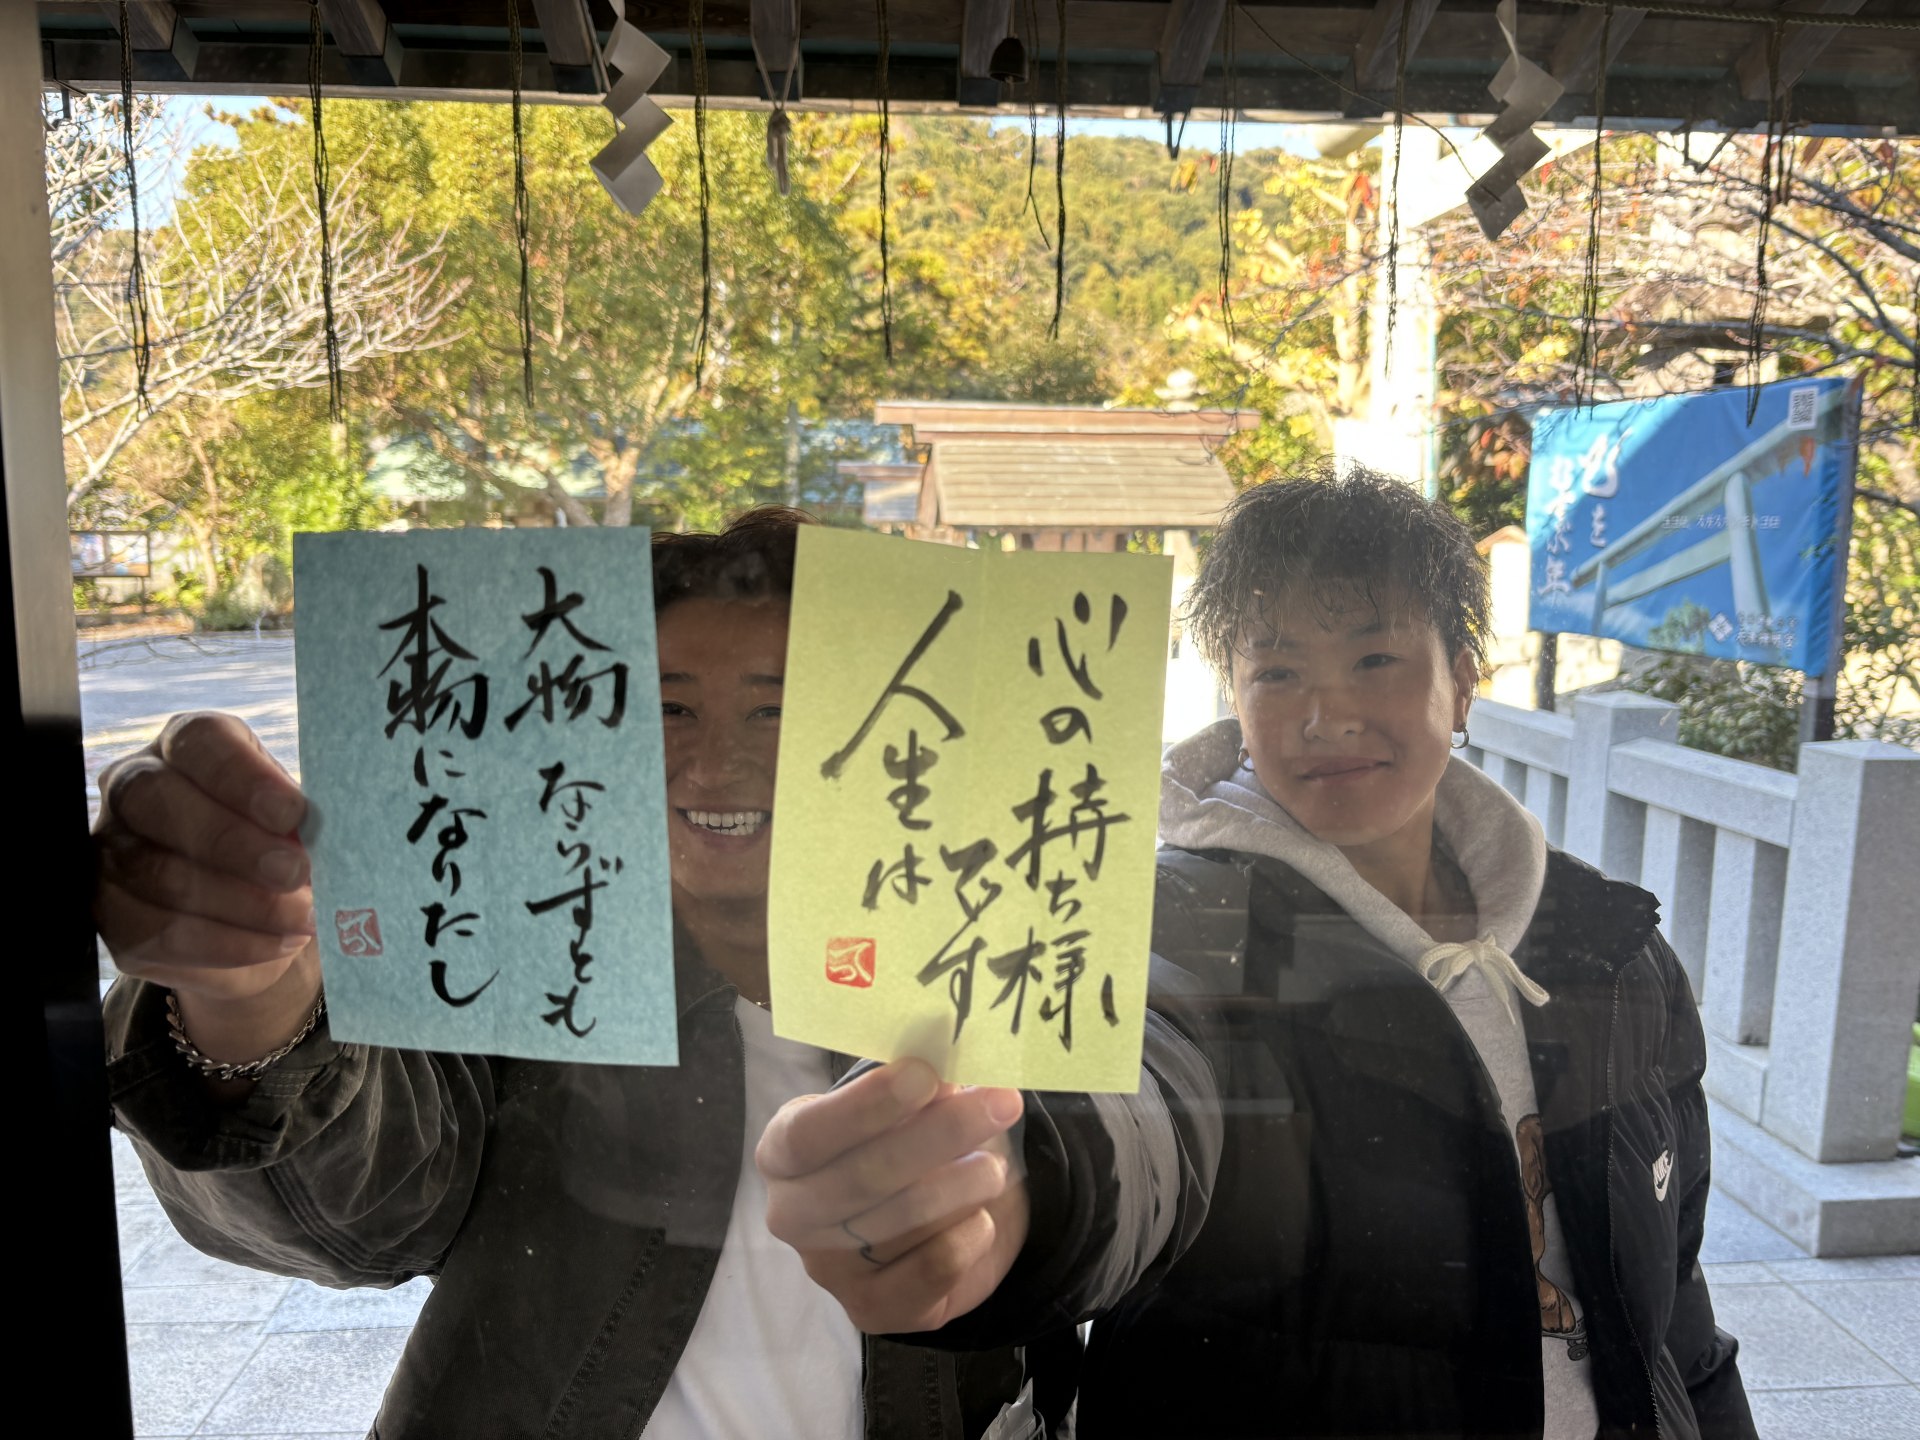 大物ならずとも
本物になりたし
人生は
心の持ち様
です
NIKE